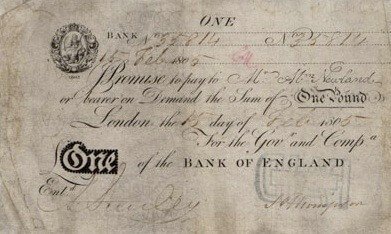 ONE
BANK No 35814 No 35814
15 Feb 1805
I Promise to pay to Mr. Abm. Newland
or bearer on Demand the Sum of One Pound
London the 15 day of Feb 1805
For the Govr. and Compa.
One of the BANK OF ENGLAND
Entd.